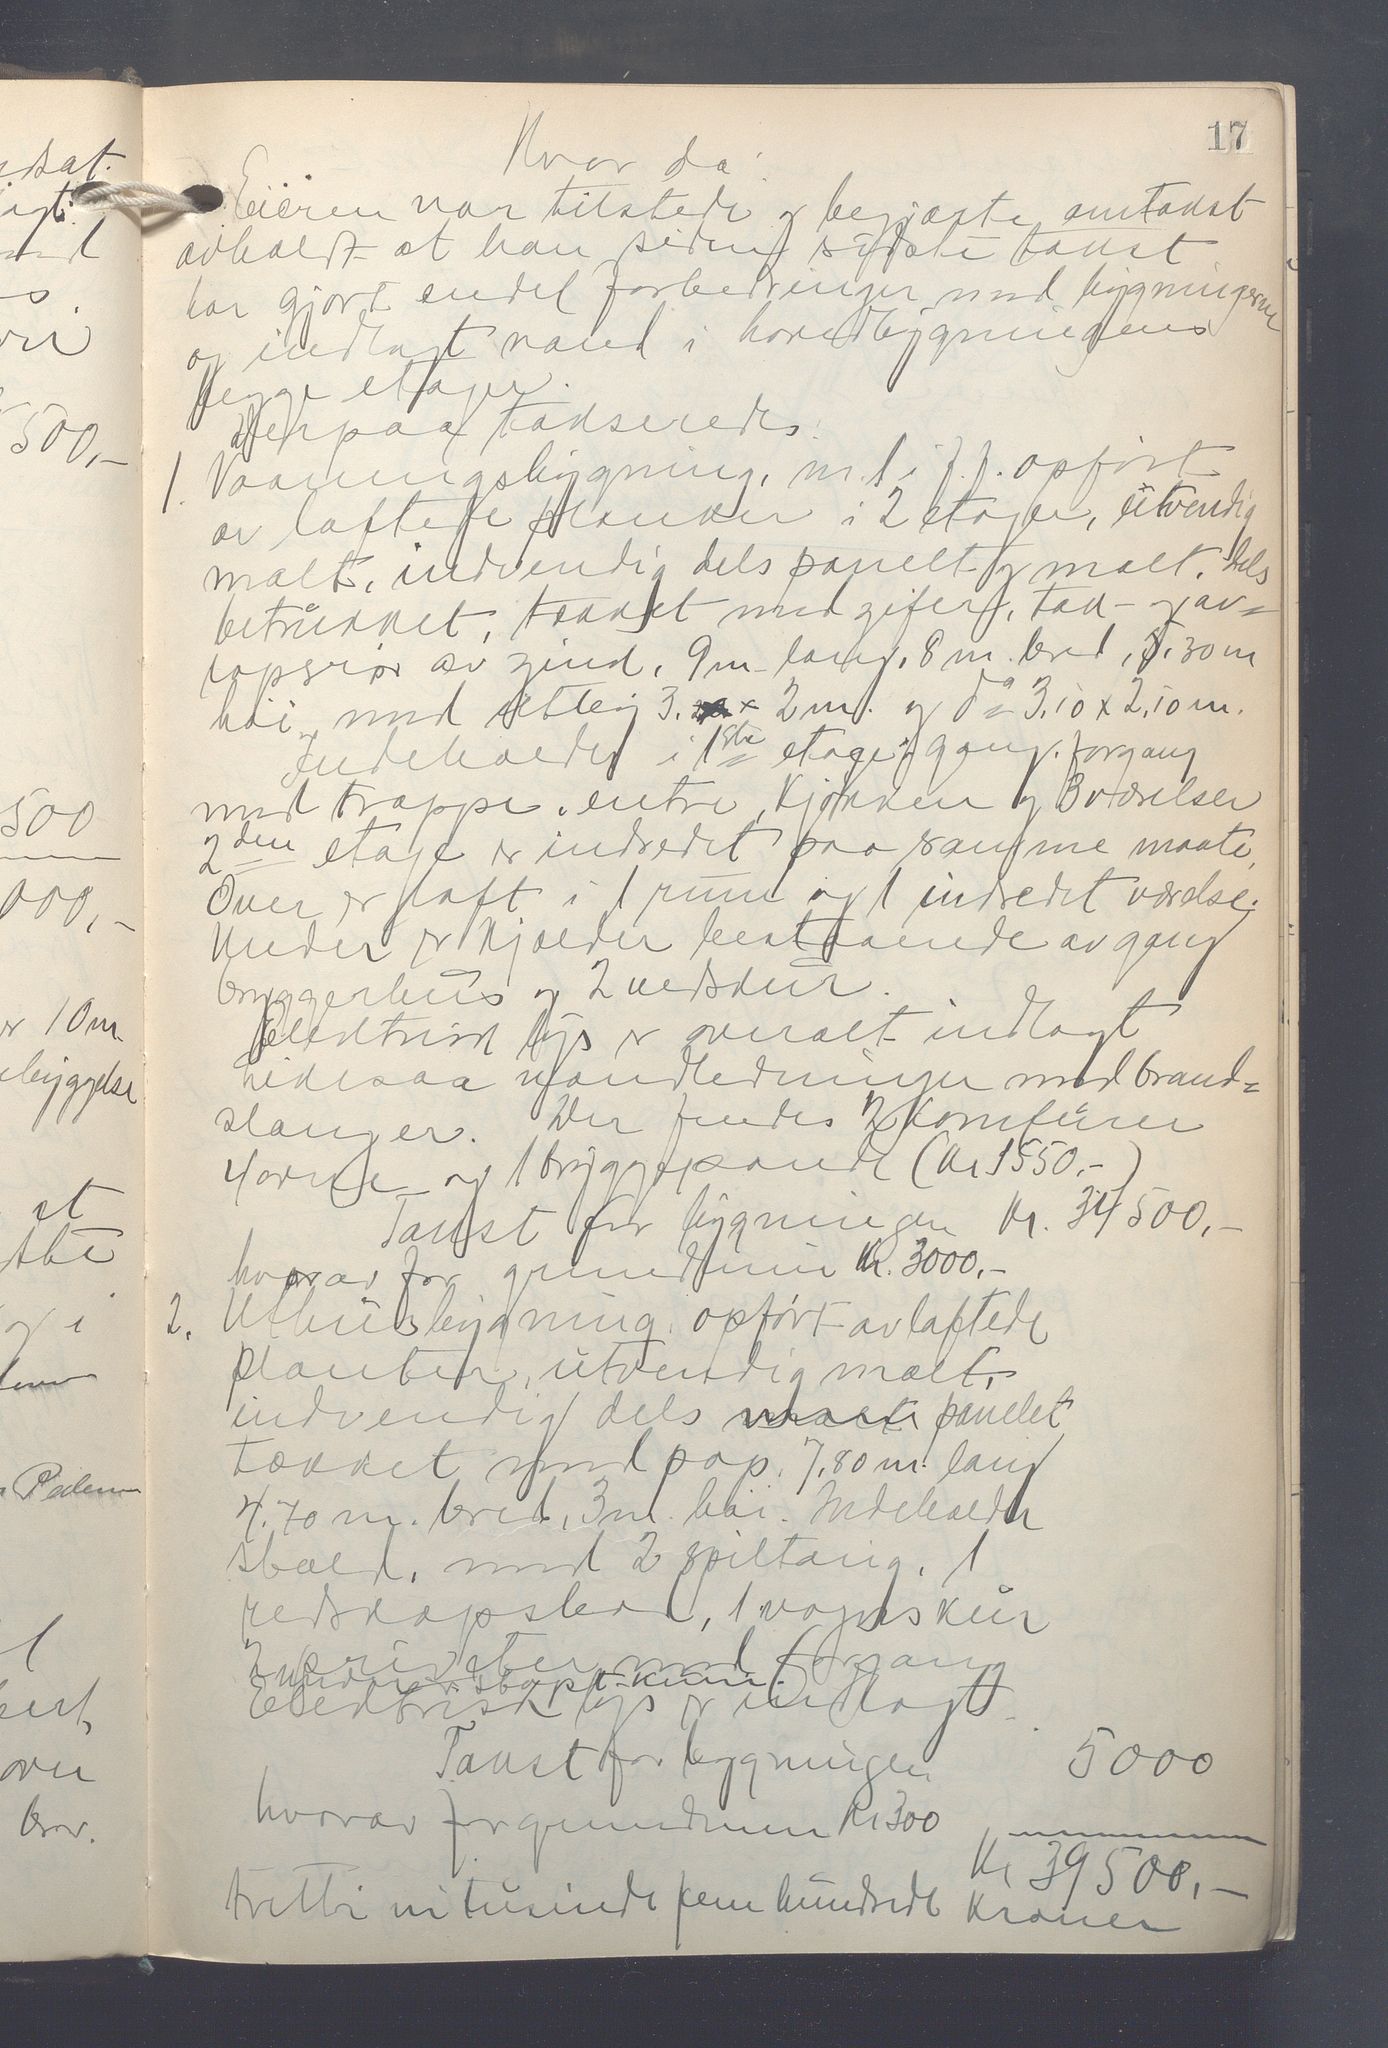 17
Hvor da:
Eieren var tilstede og begjærte omtakst
avholdt at han siden sidste takst
har gjort endel forbedringer med bygningerne
og indlagt vand i hovedbygningens
begge etager.
Derpaa takseredes:
1. Vaaningsbygning, m. 1 i f.f. opført
av laftede planker i 2 etager, utvendig
malt, indvendig dels panelt og malt, dels
betrukket, tækket med skifer, tak- og av=
løpsrør av zink, 9 m lang, 8 m bred, 8,30 m
høi, med utbyg 3, × 2 m. og do 3,10 x 2,10 m.
Indeholder i 1ste etage: gang, forgang
med trappe, entre, kjøkken og 3 værelser
2den etage er indredet paa samme maate,
Over er loft i 1 rum og 1 indredet værelse.
Under er kjælder bestaaende av gang
bryggerhus og 2 vedskur.
Elektrisk lys er overalt indlagt
likesaa vandledninger med brand=
slanger. Der findes 2 komfurer
4 ovne og 1 bryggepande (Kr 1550,-)
Takst for bygningen Kr. 34500,-
hvorav for grundmur Kr. 3000,-
2. Uthusbygning, opført av laftede
planker, utvendig malt,
indvendig dels malt panelet
tækket med pap, 7,80 m. lang
4,70 m. bred, 3 m. høi. Indeholder
stald, med 2 spiltaug, 1
redskapsbod, 1 vognskur
2 priveter med forgang
Under er støpt kum.
Elektrisk lys er indlagt.
Takst for bygningen 5000
hvorav for grundmur Kr 300
Kr 39500,-
tretti nitusinde fem hundrede Kroner
500,-
500
000,-
er 10 m.
bebyggelse
at
og i
over